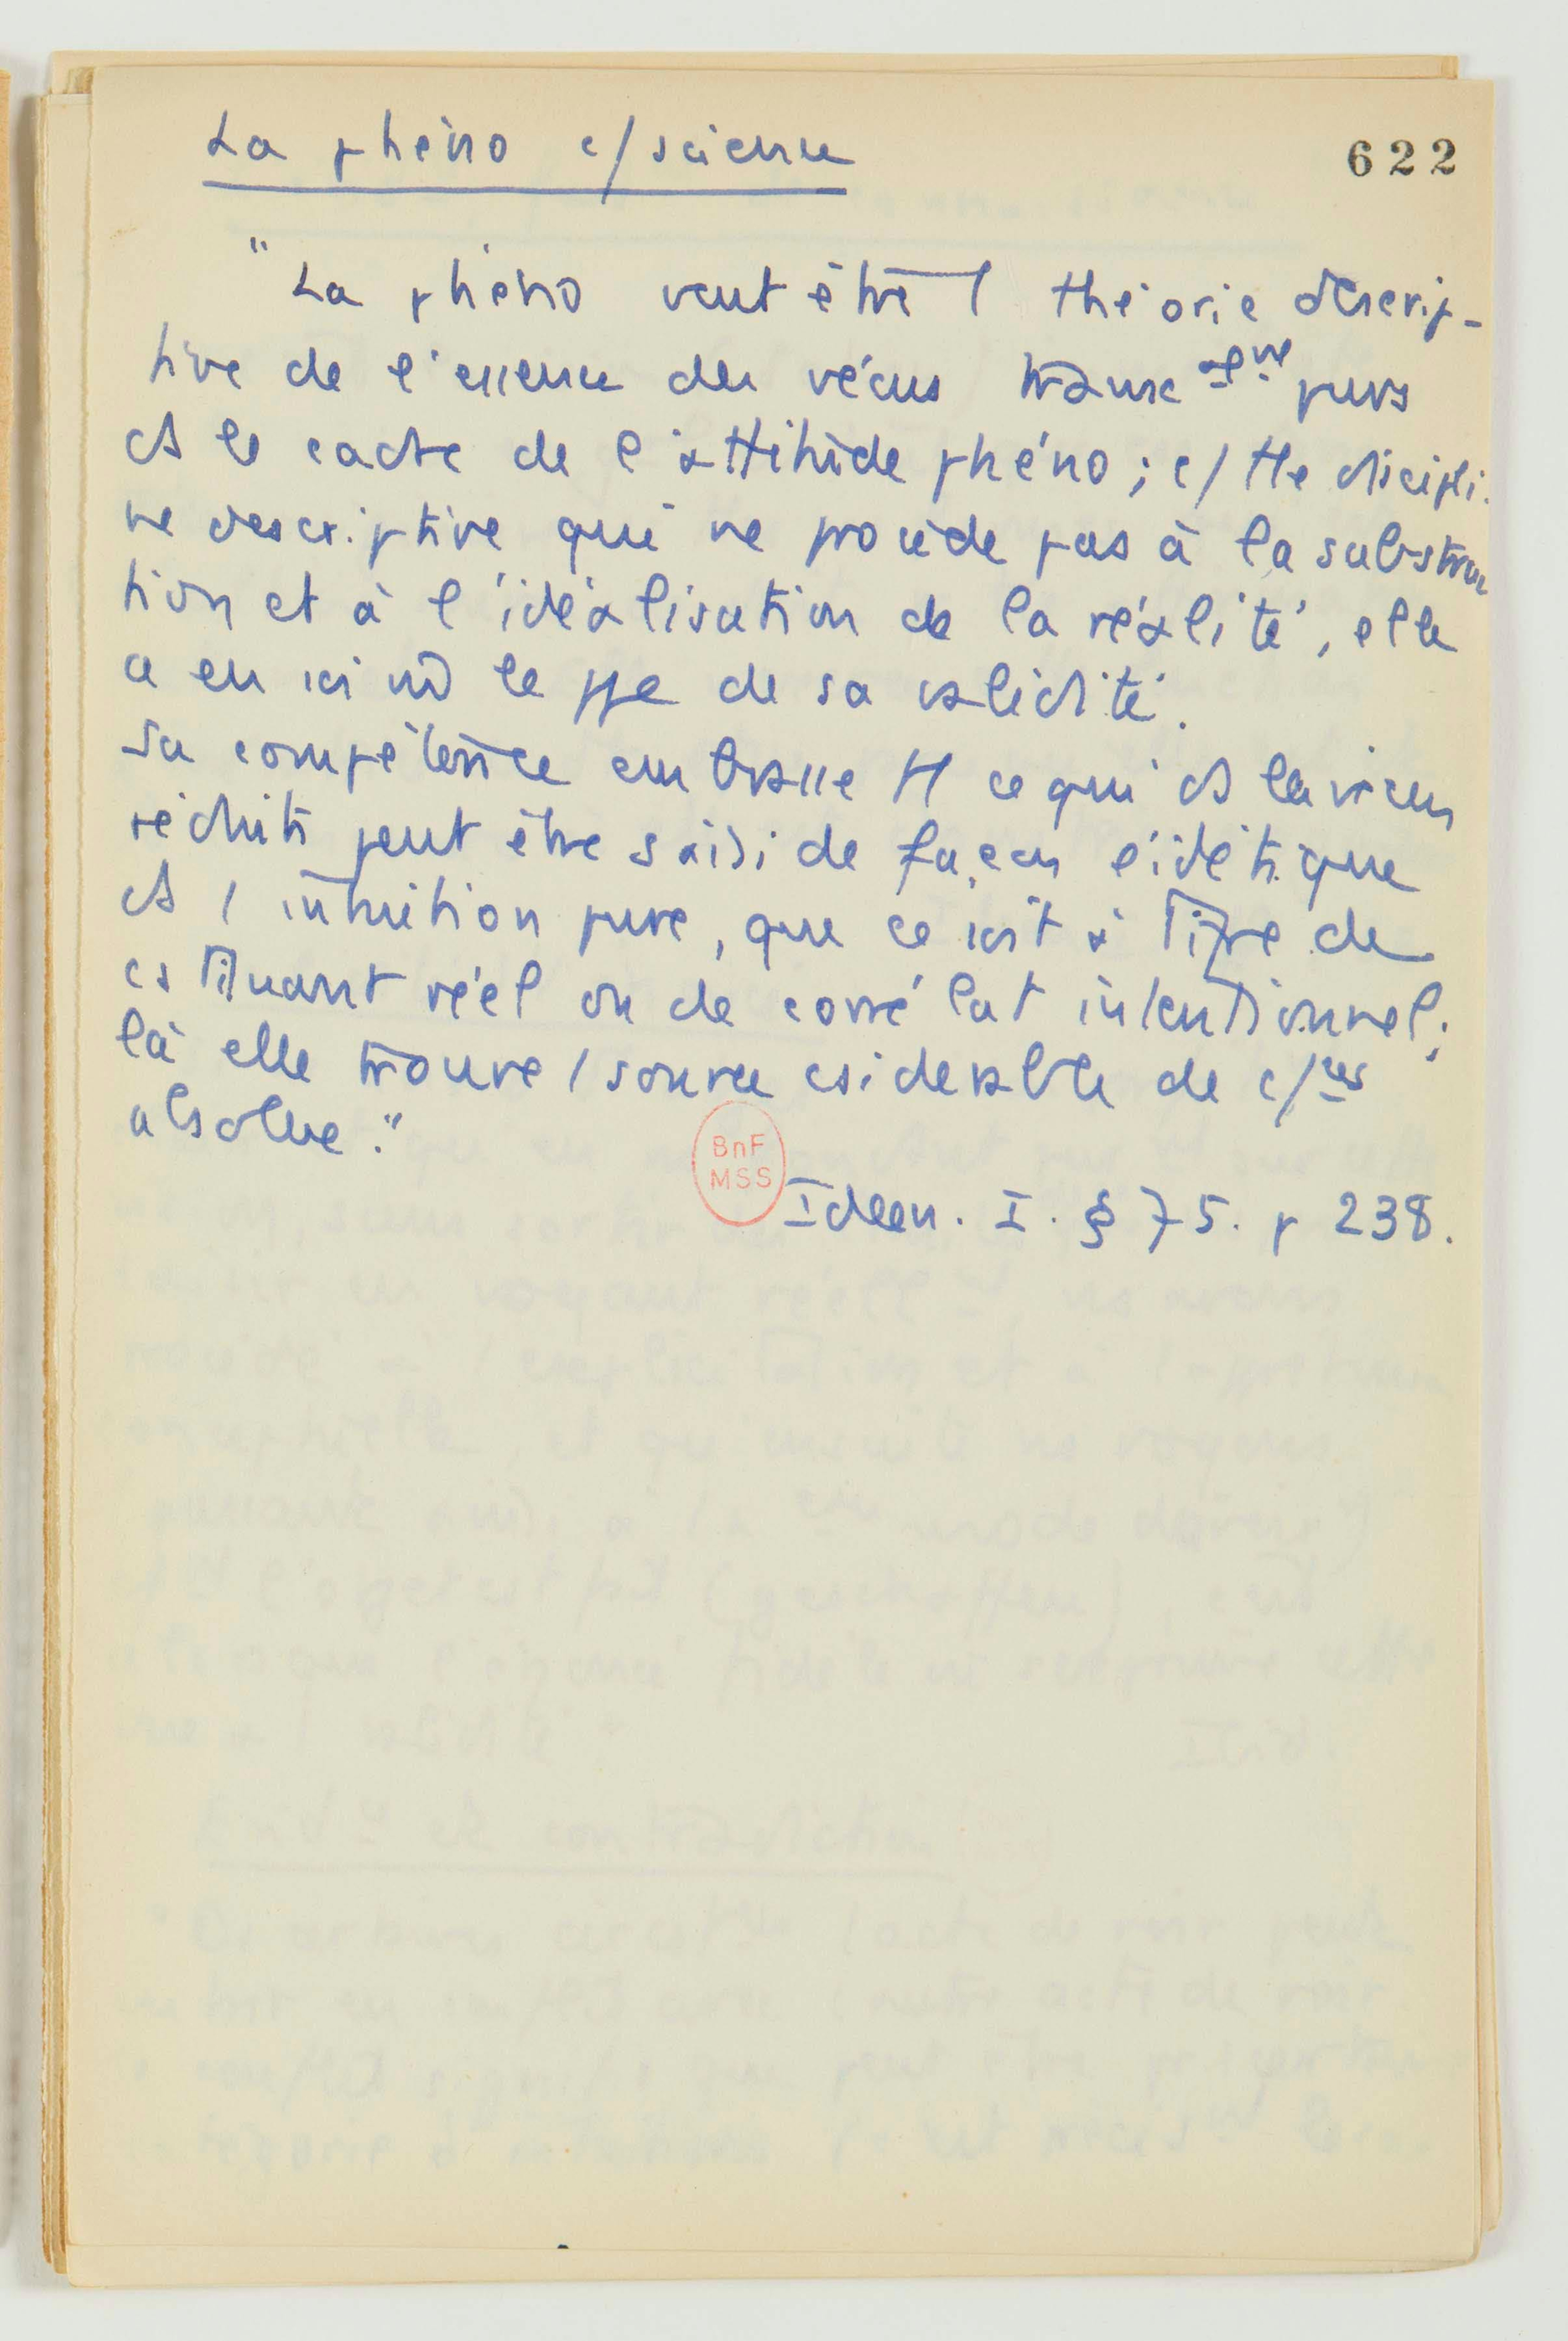 La phéno c/ science
622
"La phéno veut être 1 théorie descrip-
tive de l'essence des vécus transc purs
ds le cadre de l'attitude phéno ; c/ tte discipli-
ne descriptive qui ne procède pas à la substruc
tion et à l'idéalisation de la réalité, elle
a en soi le ppe de sa validité.
Sa compétence embrasse tt ce qui ds le vécu
réduit peut être saisi de façon eidétique
ds 1 intuition pure, que ce soit à titre de
cstituant réel ou de corrélat intentionnel ;
là elle trouve 1 source csidérable de c/ces
absolue."
BnF
MSS
Ideen. I. § 75. p 238.